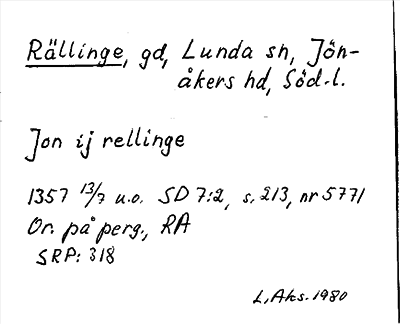 Rällinge, gd, Lunda sn, Jön-
åkers hd, Söd.l.
Jon ij rellinge
1357 13/7 u.o. SD 7:2, s. 213, nr 5771
Or. på perg., RA
SRP: 318
L. Aks. 1980